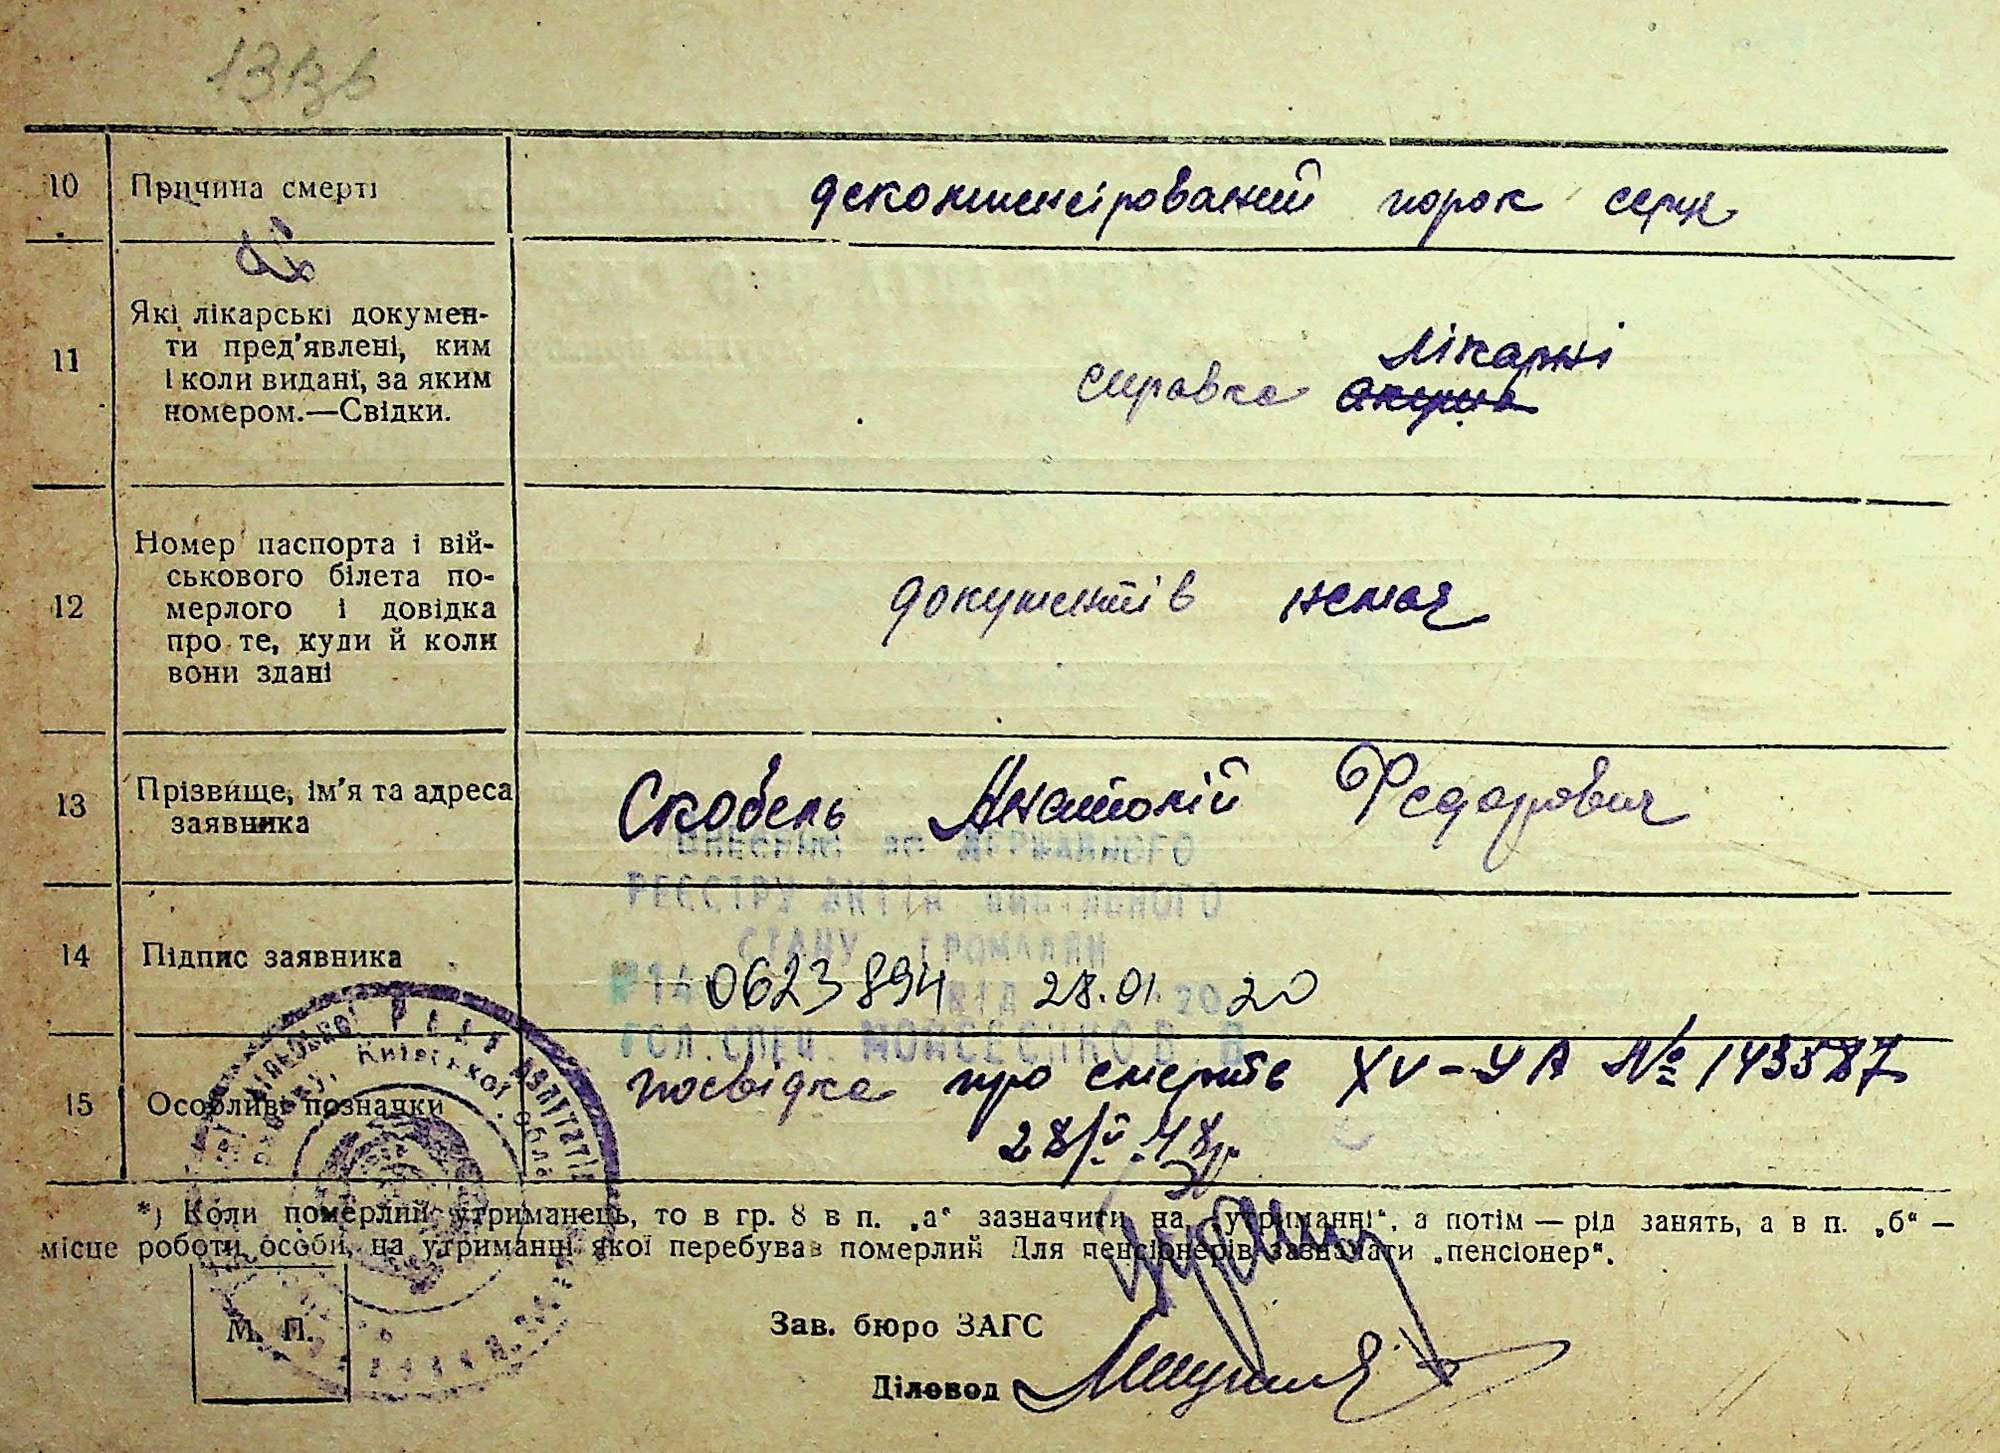 10 Причина смерті декомпенсірований порок серця
11 Які лікарські докумен-
ти пред'явлені, ким
і коли видані, за яким
номером.—Свідки.
справка лікарні
12 Номер паспорта і вій-
ськового білета по-
мерлого і довідка
про те, куди й коли
вони здані
документів немає
13 Прізвище, ім'я та адреса
заявника
Скобель Анатолій Федорович
ВНЕСЕНО до ДЕРЖАВНОГО
РЕЄСТРУ АКТІВ ЦИВІЛЬНОГО
СТАНУ ГРОМАДЯН
14 Підпис заявника
№14 0623894 ВІД 28.01.2020
ГОЛ.СПЕЦ. МОЙСЕЄНКО В.В
15 Особливі позначки
посвідка про смерть XV-УА № 143587
28/II.48р.
Київської
*) Коли померлий утриманець, то в гр. 8 в п. „а“ зазначити на „утриманні“, а потім — рід занять, а в п. „б“ —
місце роботи особи, на утриманні якої перебував померлий Для пенсіонерів зазначати „пенсіонер“.
М. П.
Зав. бюро ЗАГС
Діловод